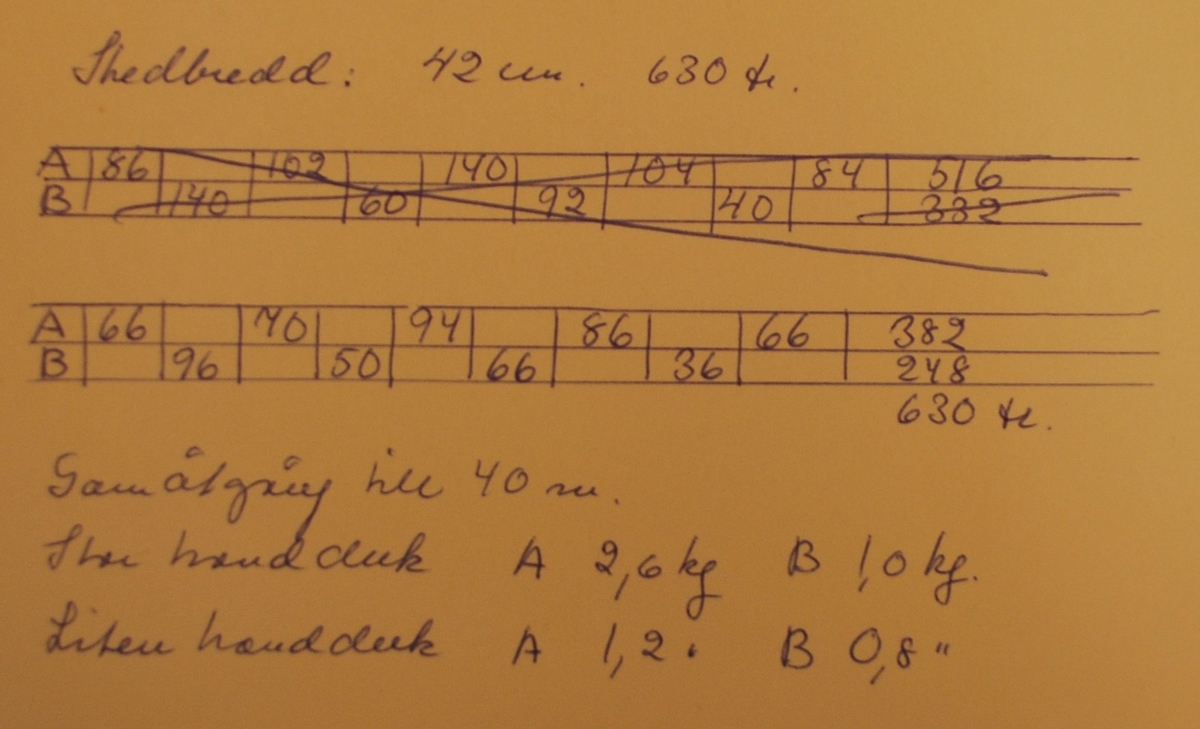 Skedbredd: 42 cm. 630 tr.
A 86 102 140 104 84 516
B 140 60 92 40 332
A 66 70 94 86 66 382
B 96 50 66 36 248
630 tr.
Garnåtgång till 40 m.
Stor handduk A 2,6 kg B 1,0 kg.
Liten handduk A 1,2 " B 0,8 "